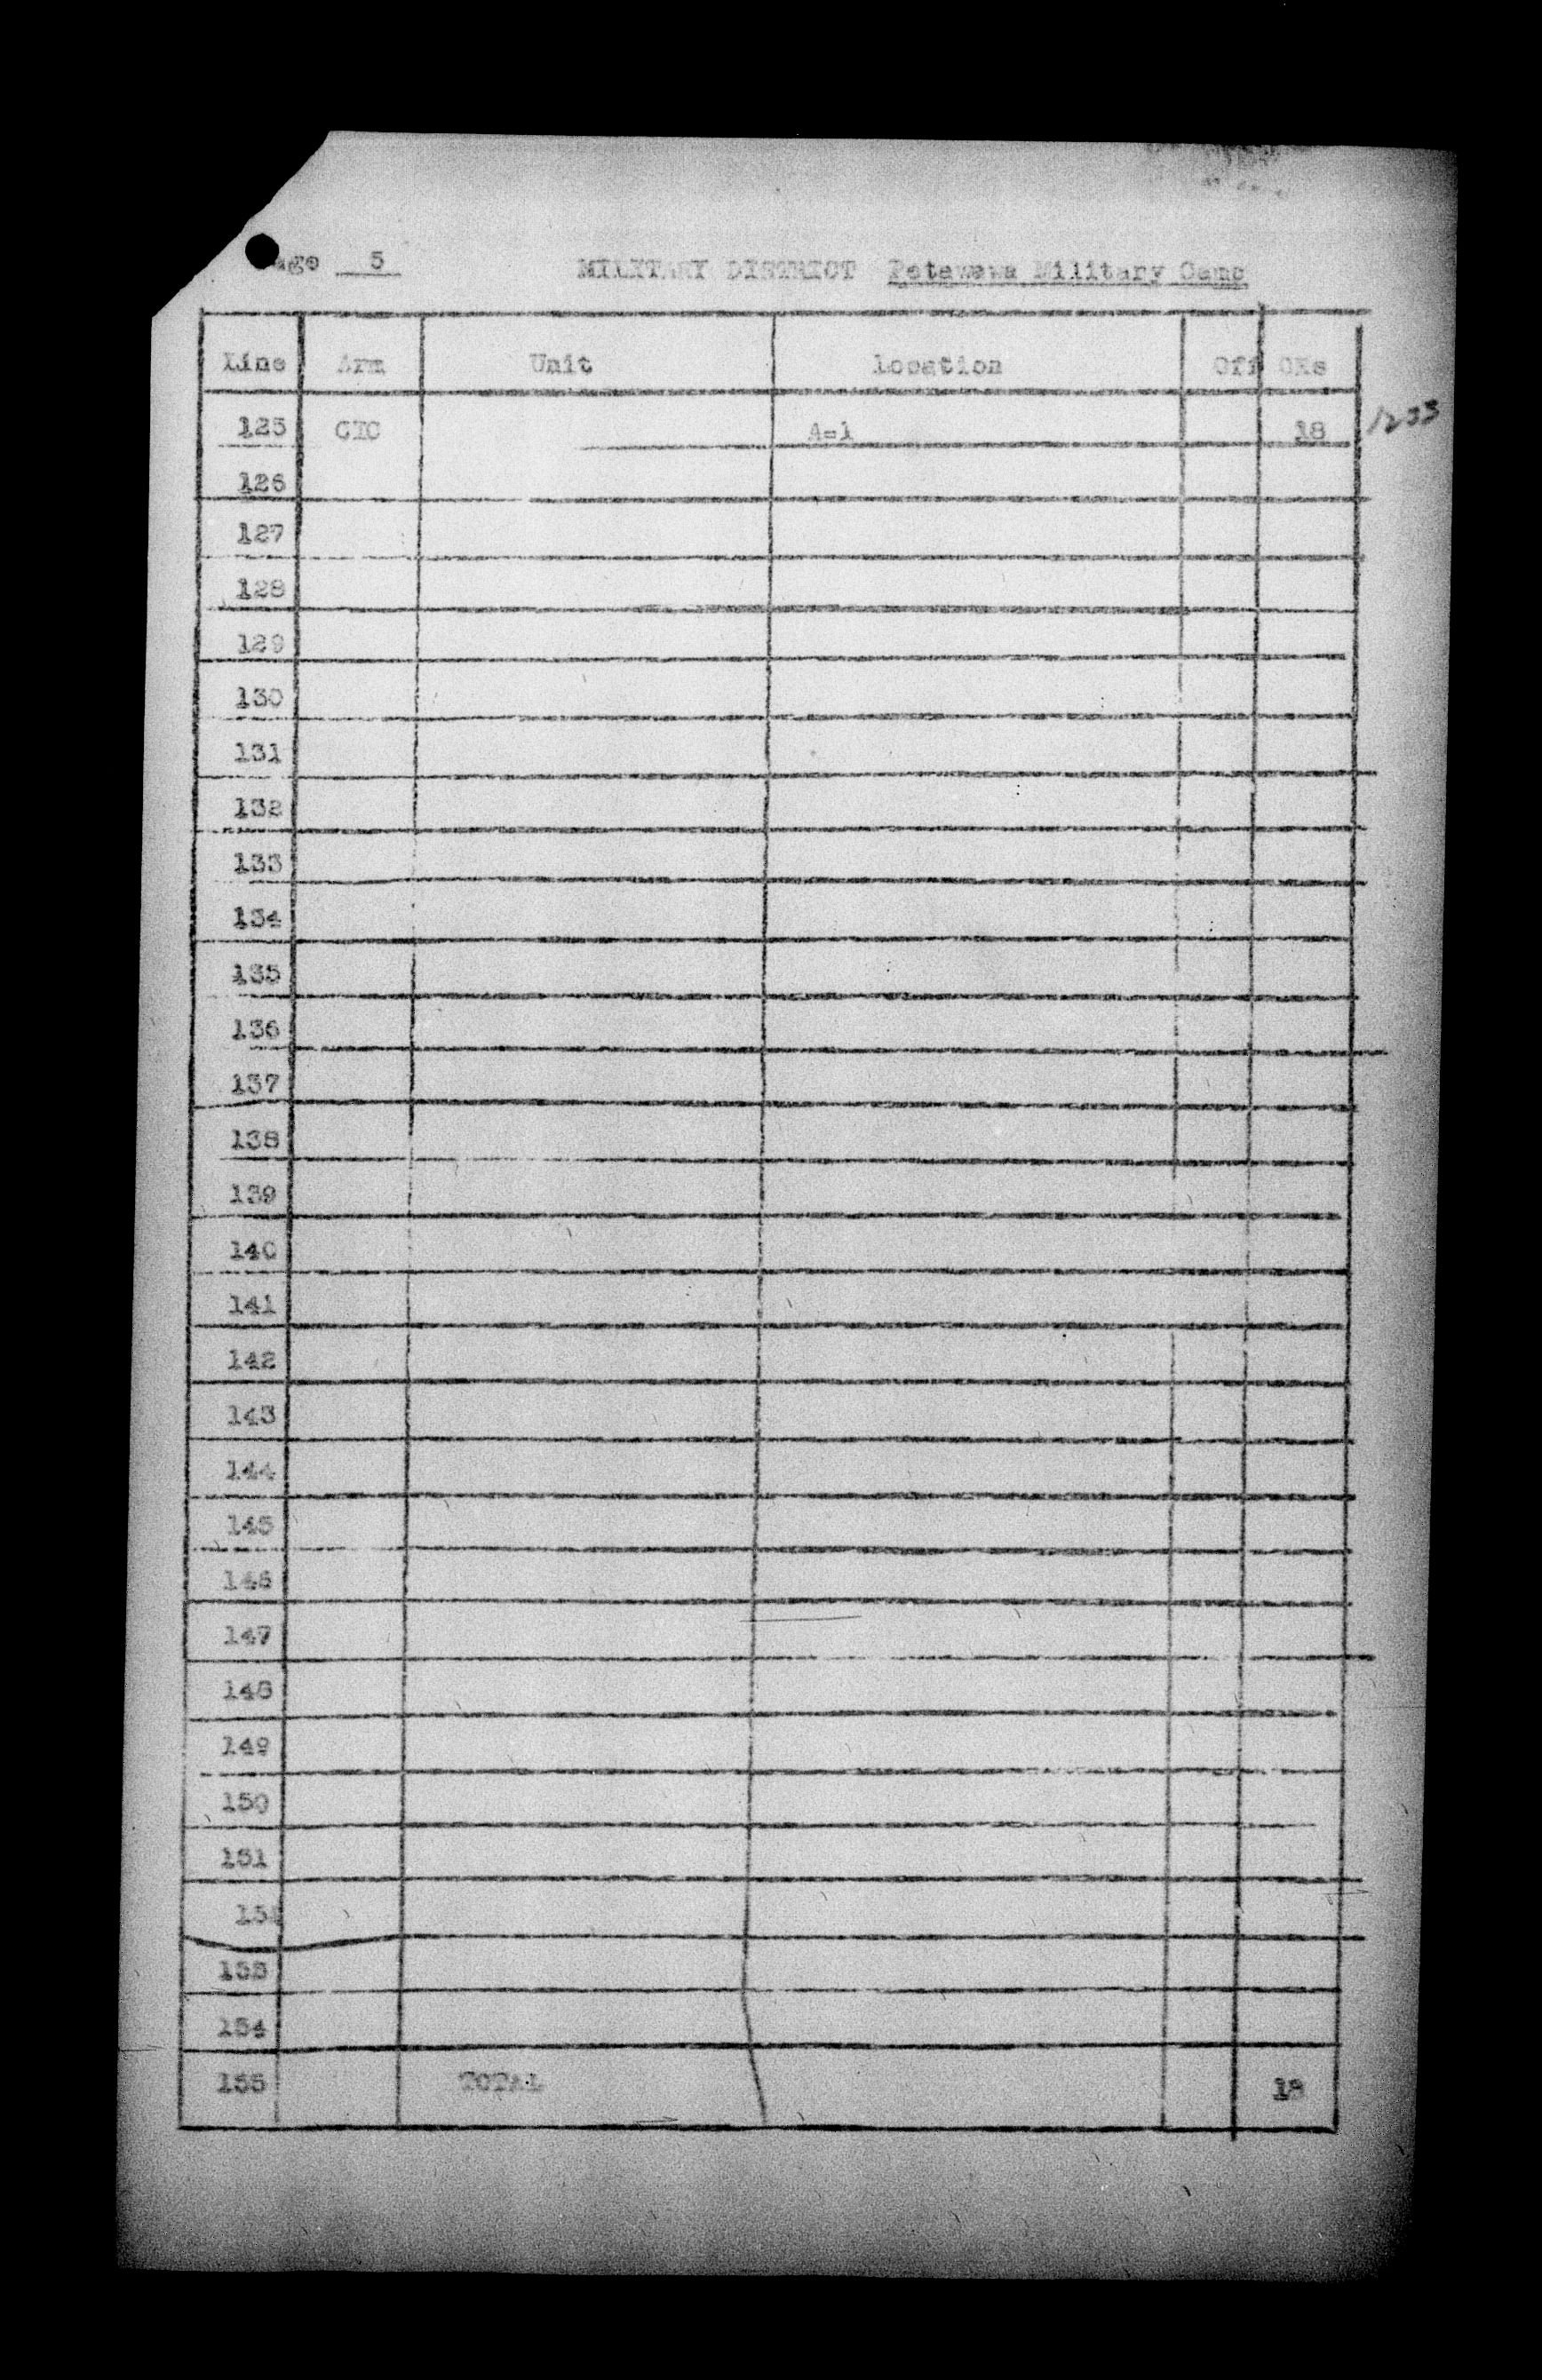 Page 5 MILITARY DISTRICT Petawawa Military Camp
Line Arm Unit Location Off ORs
125 CIC A-1 18 1233
126
127
128
129
130
131
132
133
134
135
136
137
138
139
140
141
142
143
144
145
146
147
148
149
150
151
152
153
154
155 TOTAL 18